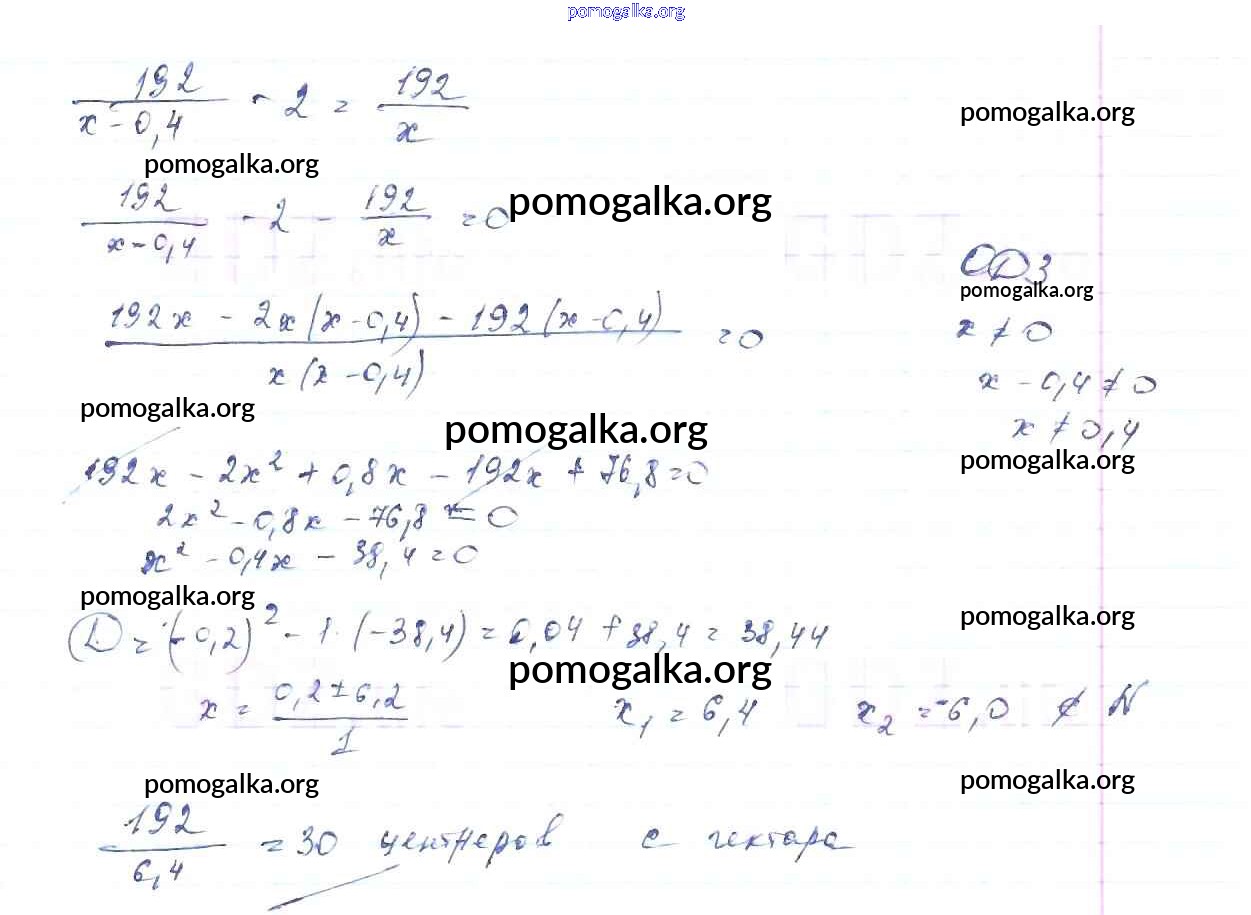 pomogalka.org
192/(x - 0,4) - 2 = 192/x
pomogalka.org
pomogalka.org
192/(x - 0,4) - 2 - 192/x = 0
pomogalka.org
ОДЗ
pomogalka.org
x ≠ 0
(192x - 2x(x - 0,4) - 192(x - 0,4))/(x(x - 0,4)) = 0
x - 0,4 ≠ 0
x ≠ 0,4
pomogalka.org
pomogalka.org
pomogalka.org
192x - 2x² + 0,8x - 192x + 76,8 = 0
2x² - 0,8x - 76,8 = 0
x² - 0,4x - 38,4 = 0
pomogalka.org
pomogalka.org
D = (-0,2)² - 1·(-38,4) = 0,04 + 38,4 = 38,44
pomogalka.org
x = (0,2 ± 6,2)/1 x₁ = 6,4 x₂ = -6,0 ∉ N
pomogalka.org
pomogalka.org
192/6,4 = 30 центнеров с гектара